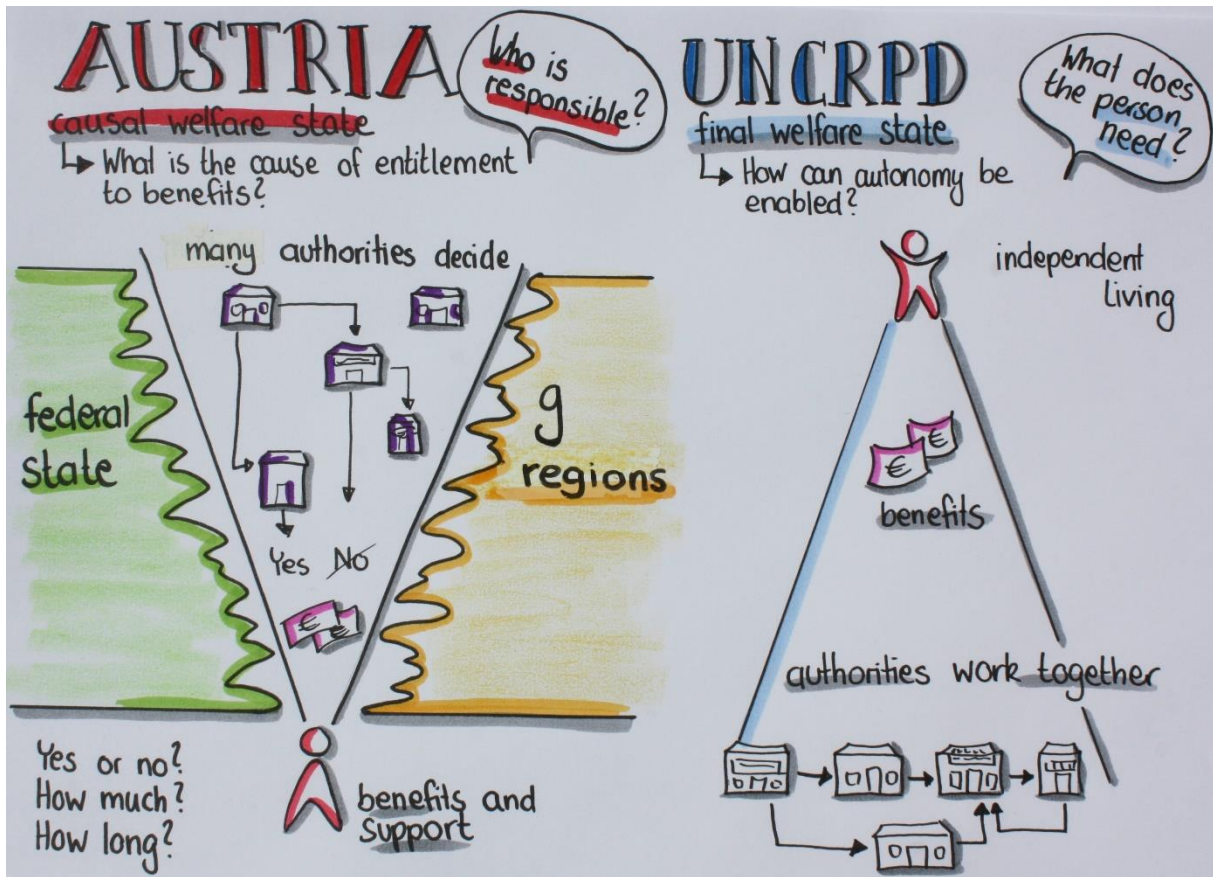 AUSTRIA
Who is
responsible?
causal welfare state
What is the cause of entitlement
to benefits?
many authorities decide
federal
state
9
regions
Yes No
€ €
Yes or no?
How much?
How long?
benefits and
support
UNCRPD
What does
the person
need?
final welfare state
How can autonomy be
enabled?
independent
living
€ €
benefits
authorities work together